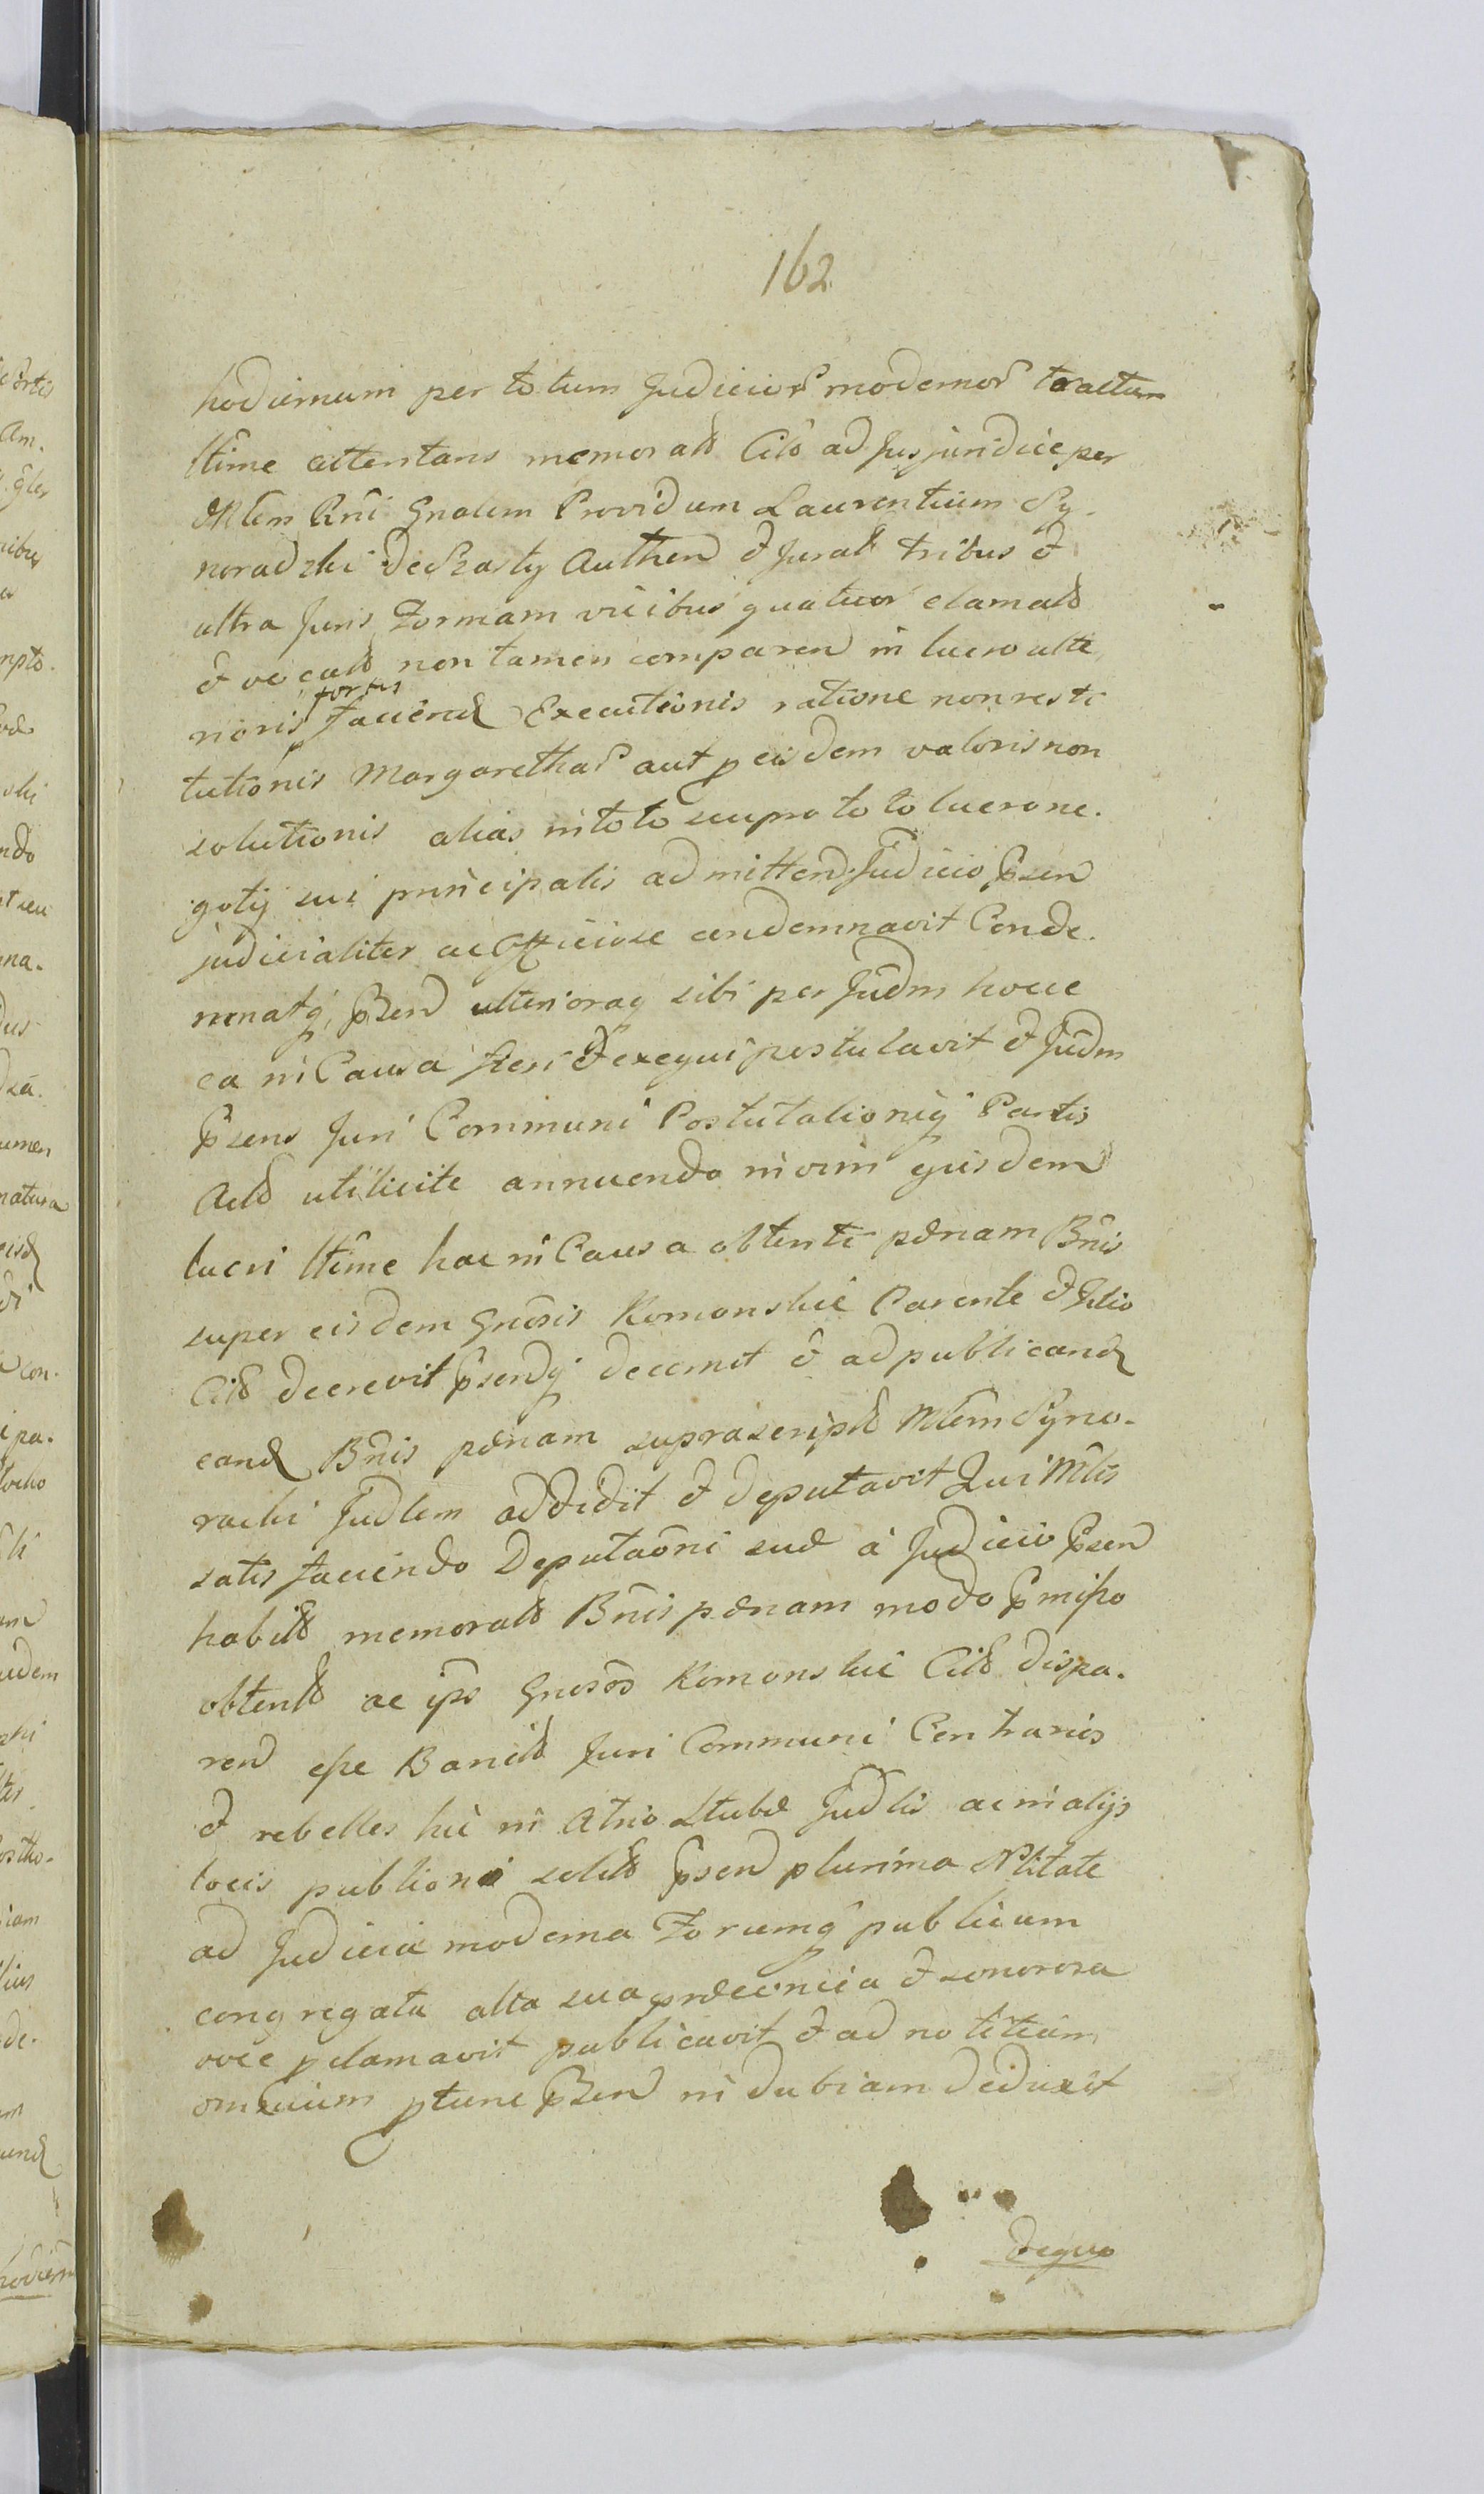 162
hodiernum per totum Judicior modernor tractum
ltime attentans memorat Cit ad Jus juridice per
Mlem Rni Gnalem Providum Laurentium Sy-
noradzki de Szasty Authen et Jurat tribus et
ultra Juris Formam vicibus quatuor clamat
et vocat non tamen comparen in lucro ulte
rioris fortis faciend Executionis ratione non resti
tutionis Margarethar aut p eisdem valoris non
solutionis alias in toto seu pro toto lucro ne-
gotij sui principalis admitten Judicio Psen
judicialiter ac officiose condemnavit Conde-
mnatq Psen ulterioraq sibi per Judm hocce
ea in Causa fieri et exequi postulavit et Judm
Psens Juri Communi Postulationiq Partis
Act uti licite annuendo in vim ejusdem
lucri ltime hac in Causa obtenti pænam Bnis
super eisdem Gnosis Komonskie Parente et Filio
Cit decrevit Psendq decernit et ad publicand
eand Bnis pænam suprascript Mlem Syno-
racki Judlem addidit et deputavit Qui Mlis
satis faciendo Deputaoni suæ a Judicio Psen
habit memorat Bnis pænam modo Pmisso
obtent ac ips Gnosos Komonskie Cit dispa-
ren esse Banit Juri Communi Contrarios
et rebelles hic in Atrio Stubæ Judlis ac in alijs
locis publicari solit Psen plurima Nlitate
ad Judicia moderna Forumq publicum
congregata alta sua præconica et sonorosa
voce pclamavit publicavit et ad notitiam
omnium ptunc Psen indubiam deduxit
de quo